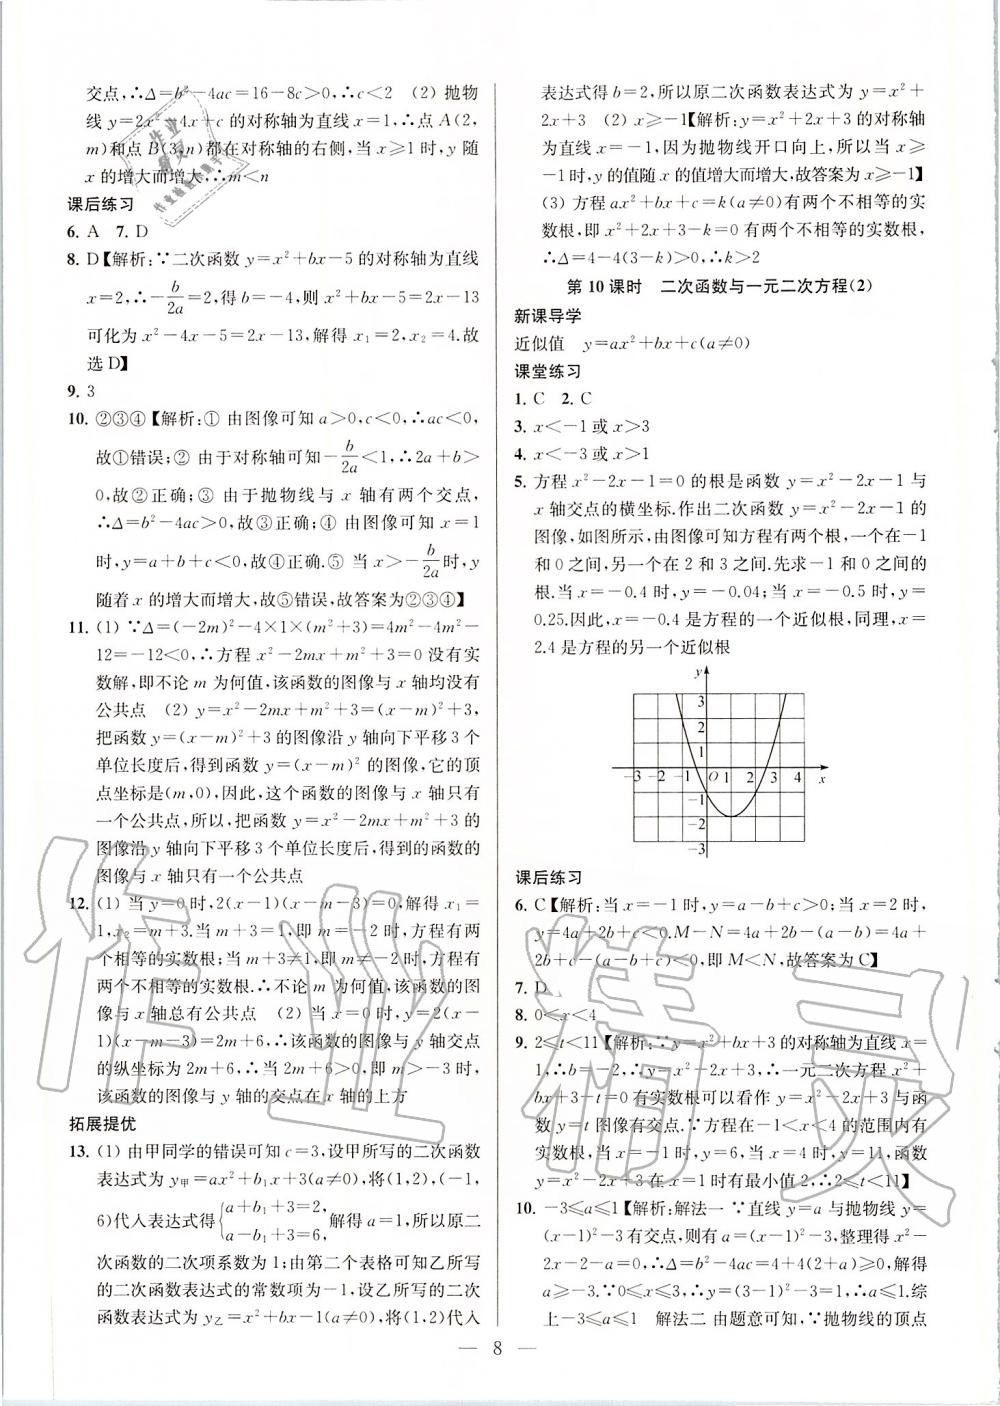 交点,∴Δ=b²-4ac=16-8c>0,∴c<2 (2) 抛物
线 y=2x²-4x+c 的对称轴为直线 x=1,∴点 A(2,
m)和点 B(3,n)都在对称轴的右侧,当 x≥1 时,y 随
x 的增大而增大,∴m<n
课后练习
6. A 7. D
8. D【解析:∵二次函数 y=x²+bx-5 的对称轴为直线
x=2,∴-b/2a=2,得 b=-4,则 x²+bx-5=2x-13
可化为 x²-4x-5=2x-13,解得 x₁=2,x₂=4.故
选 D】
9. 3
10. ②③④【解析:① 由图像可知 a>0,c<0,∴ac<0,
故①错误;② 由于对称轴可知-b/2a<1,∴2a+b>
0,故②正确;③ 由于抛物线与 x 轴有两个交点,
∴Δ=b²-4ac>0,故③正确;④ 由图像可知当 x=1
时,y=a+b+c<0,故④正确.⑤ 当 x>-b/2a时,y
随着 x 的增大而增大,故⑤错误,故答案为②③④】
11. (1) ∵Δ=(-2m)²-4×1×(m²+3)=4m²-4m²-
12=-12<0,∴方程 x²-2mx+m²+3=0 没有实
数解,即不论 m 为何值,该函数的图像与 x 轴均没有
公共点 (2) y=x²-2mx+m²+3=(x-m)²+3,
把函数 y=(x-m)²+3 的图像沿 y 轴向下平移 3 个
单位长度后,得到函数 y=(x-m)² 的图像,它的顶
点坐标是(m,0),因此,这个函数的图像与 x 轴只有
一个公共点,所以,把函数 y=x²-2mx+m²+3 的
图像沿 y 轴向下平移 3 个单位长度后,得到的函数的
图像与 x 轴只有一个公共点
12. (1) 当 y=0 时,2(x-1)(x-m-3)=0,解得 x₁=
1,x₂=m+3.当 m+3=1,即 m=-2 时,方程有两
个相等的实数根;当 m+3≠1,即 m≠-2 时,方程有
两个不相等的实数根.∴不论 m 为何值,该函数的图
像与 x 轴总有公共点 (2) 当 x=0 时,y=2(x-
1)(x-m-3)=2m+6,∴该函数的图像与 y 轴交点
的纵坐标为 2m+6,∴当 2m+6>0,即 m>-3 时,
该函数的图像与 y 轴的交点在 x 轴的上方
拓展提优
13. (1) 由甲同学的错误可知 c=3,设甲所写的二次函数
表达式为 y甲=ax²+b₁x+3(a≠0),将(1,2),(-1,
6)代入表达式得{a+b₁+3=2, a-b₁+3=6,解得 a=1,所以原二
次函数的二次项系数为 1;由第二个表格可知乙所写
的二次函数表达式的常数项为-1,设乙所写的二次
函数表达式为 y乙=x²+bx-1(a≠0),将(1,2)代入
表达式得 b=2,所以原二次函数表达式为 y=x²+
2x+3 (2) x≥-1【解析:y=x²+2x+3 的对称轴
为直线 x=-1,因为抛物线开口向上,所以当 x≥
-1时,y 的值随 x 的值增大而增大,故答案为 x≥-1】
(3) 方程 ax²+bx+c=k(a≠0)有两个不相等的实
数根,即 x²+2x+3-k=0 有两个不相等的实数根,
∴Δ=4-4(3-k)>0,∴k>2
第 10 课时 二次函数与一元二次方程(2)
新课导学
近似值 y=ax²+bx+c(a≠0)
课堂练习
1. C 2. C
3. x<-1 或 x>3
4. x<-3 或 x>1
5. 方程 x²-2x-1=0 的根是函数 y=x²-2x-1 与
x 轴交点的横坐标.作出二次函数 y=x²-2x-1 的
图像,如图所示,由图像可知方程有两个根,一个在-1
和 0 之间,另一个在 2 和 3 之间.先求-1 和 0 之间的
根.当 x=-0.4 时,y=-0.04;当 x=-0.5 时,y=
0.25.因此,x=-0.4 是方程的一个近似根,同理,x=
2.4 是方程的另一个近似根
y
3
2
1
-3 -2 -1 O 1 2 3 4 x
-1
-2
-3
课后练习
6. C【解析:当 x=-1 时,y=a-b+c>0;当 x=2 时,
y=4a+2b+c<0.M-N=4a+2b-(a-b)=4a+
2b+c-(a-b+c)<0,即 M<N,故答案为 C】
7. D
8. 0<x<4
9. 2≤t<11【解析:∵y=x²+bx+3 的对称轴为直线 x=
1,∴b=-2,∴y=x²-2x+3,∴一元二次方程 x²+
bx+3-t=0 有实数根可以看作 y=x²-2x+3 与函
数 y=t 图像有交点.∵方程在-1<x<4 的范围内有
实数根,当 x=-1 时,y=6;当 x=4 时,y=11,函数
y=x²-2x+3 在 x=1 时有最小值 2,∴2≤t<11】
10. -3≤a≤1【解析:解法一 ∵直线 y=a 与抛物线 y=
(x-1)²-3 有交点,则有 a=(x-1)²-3,整理得 x²-
2x-2-a=0,∴Δ=b²-4ac=4+4(2+a)≥0,解得
a≥-3.∵0≤x≤3,∴y=(3-1)²-3=1,∴a≤1,综
上-3≤a≤1 解法二 由题意可知,∵抛物线的顶点
8
作业精灵